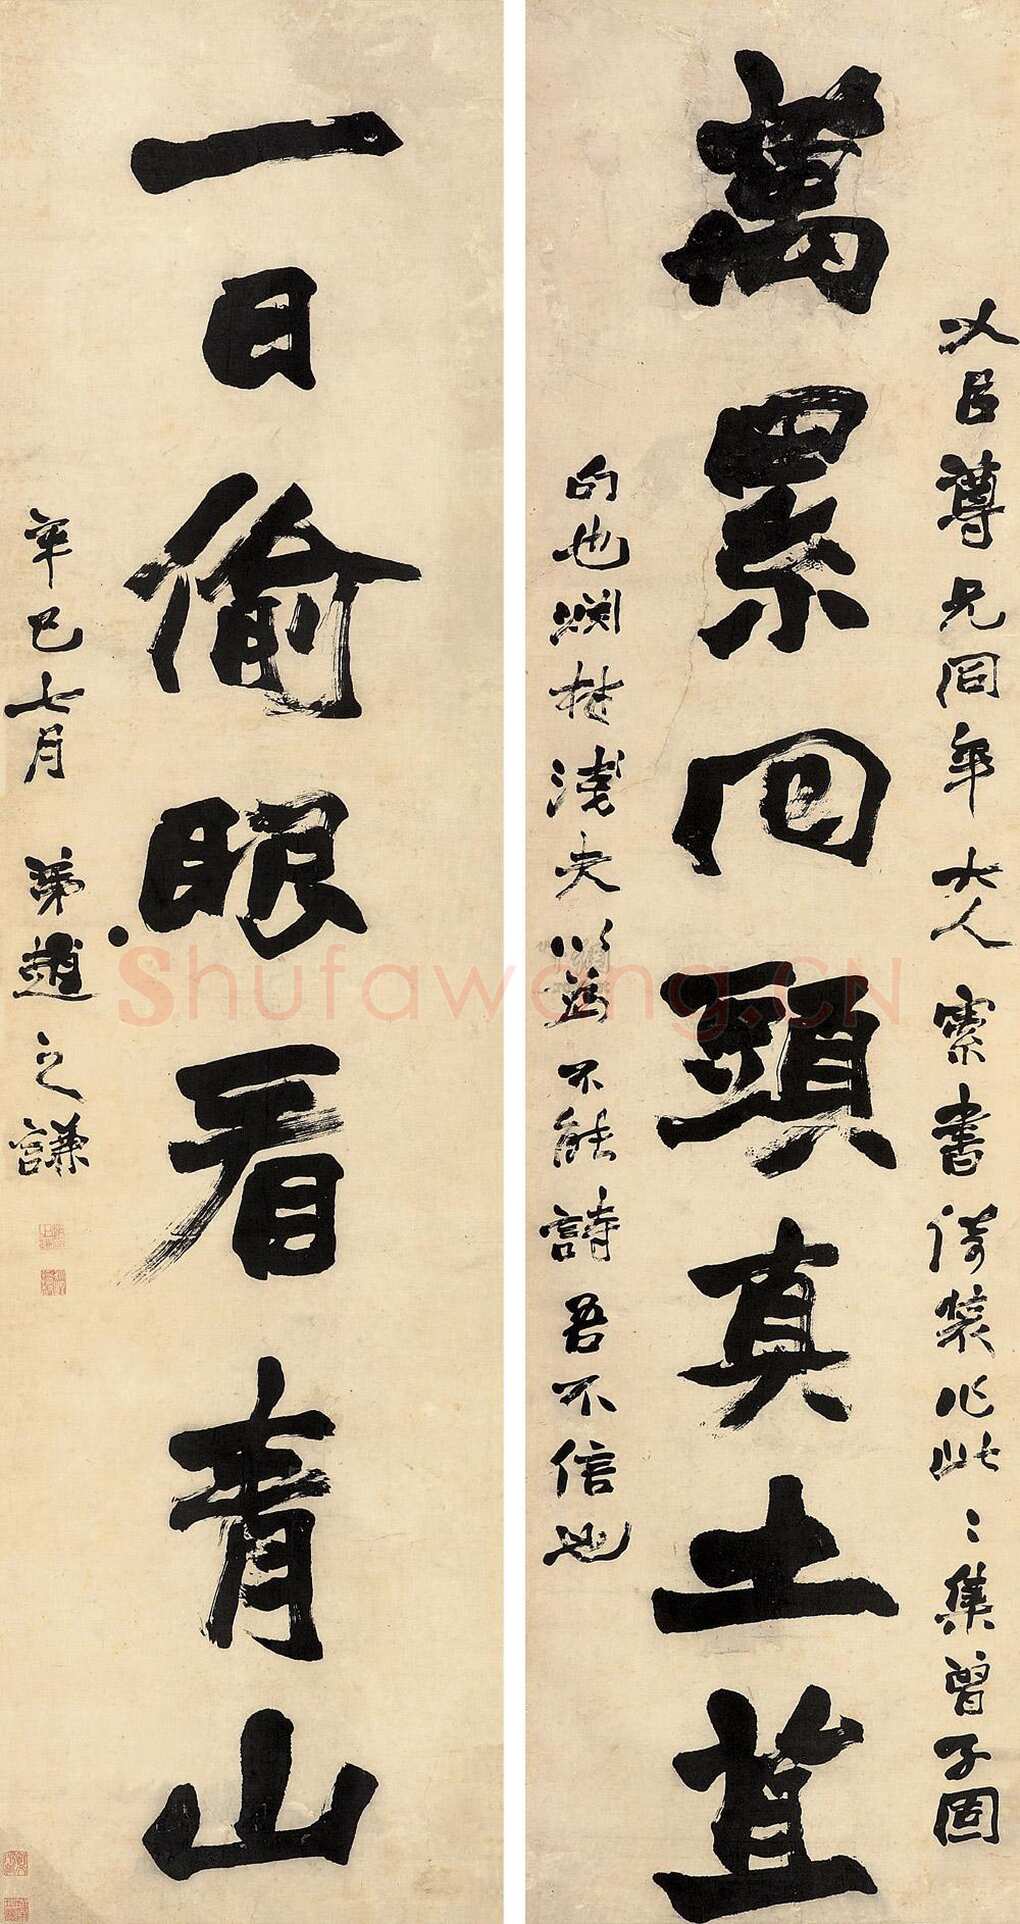 萬累回頭真土苴
以臣尊兄同年大人索書待裝作此〻集曾子固
句也淵材淺夫以為不能詩吾不信也
一日偷眼看青山
辛巳七月 弟趙之謙
Shufawang.CN